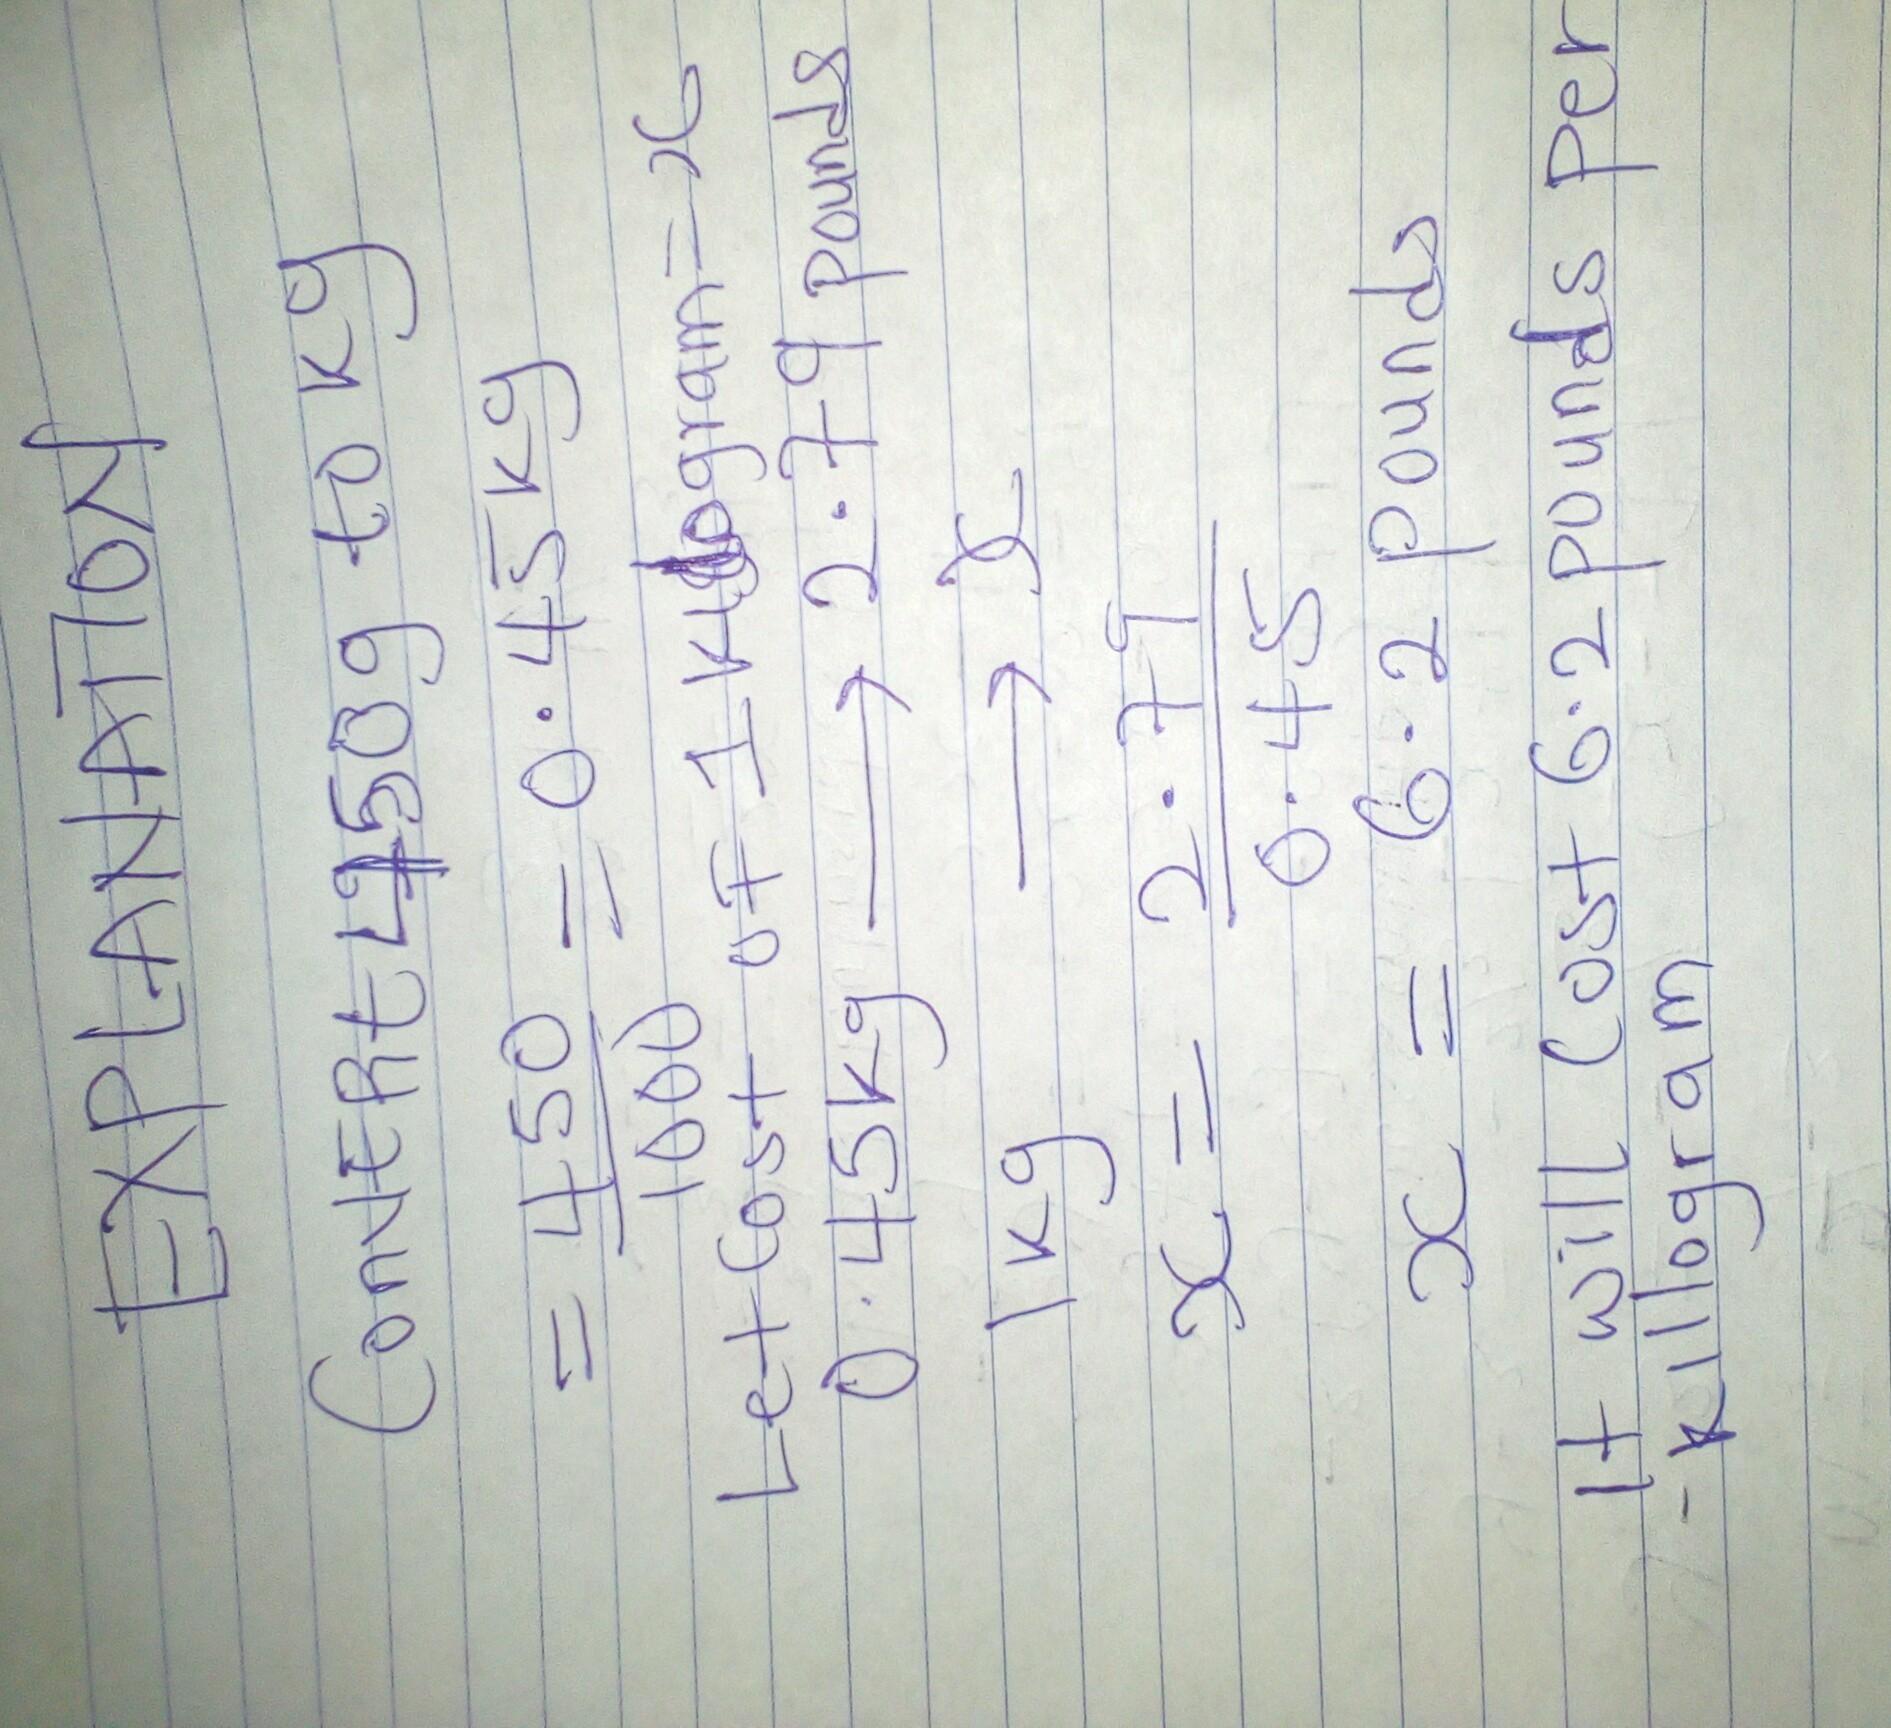 EXPLANATION
ConvERt 450g to kg
= 450/1000 = 0.45kg
Let Cost of 1 kilogram = x
0.45kg → 2.79 pounds
1kg → x
x = 2.79/0.45
x = 6.2 pounds
It will Cost 6.2 pounds Per
-killogram